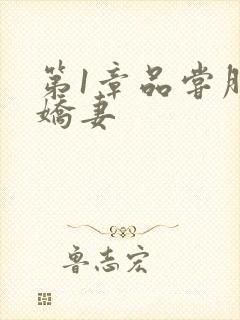 第1章品尝
娇妻
鲁志宏